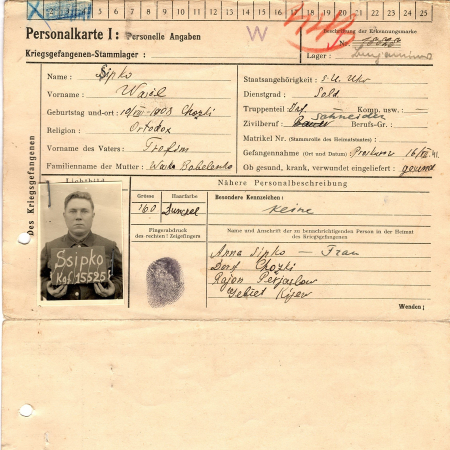 X 1 2 3 4 5 6 7 8 9 10 11 12 13 14 15 16 17 18 19 20 21 22 23 24 25
Personalkarte I: Personelle Angaben
Kriegsgefangenen-Stammlager:
W
Beschriftung der Erkennungsmarke
Nr.
Lager:
Des Kriegsgefangenen
Name: Sipko
Vorname: Wasil
Geburtstag und -ort: Chozki
Religion: Ortodox
Vorname des Vaters: Trofim
Familienname der Mutter:
Staatsangehörigkeit: S.U. Ukr
Dienstgrad: Sold
Truppenteil: Inf. Komp. usw.:
Zivilberuf: Bauer Schneider Berufs-Gr.:
Matrikel Nr. (Stammrolle des Heimatstaates):
Gefangennahme (Ort und Datum)
Ob gesund, krank, verwundet eingeliefert: gesund
Lichtbild
Nähere Personalbeschreibung
Grösse Haarfarbe Besondere Kennzeichen:
160 Dunkel keine
Fingerabdruck des rechten! Zeigefingers
Name und Anschrift der zu benachrichtigenden Person in der Heimat des Kriegsgefangenen
Anna Sipko — Frau
Dorf Chozki
Rajon Perjaslow
Gebiet Kijew
Wenden!
Ssipko